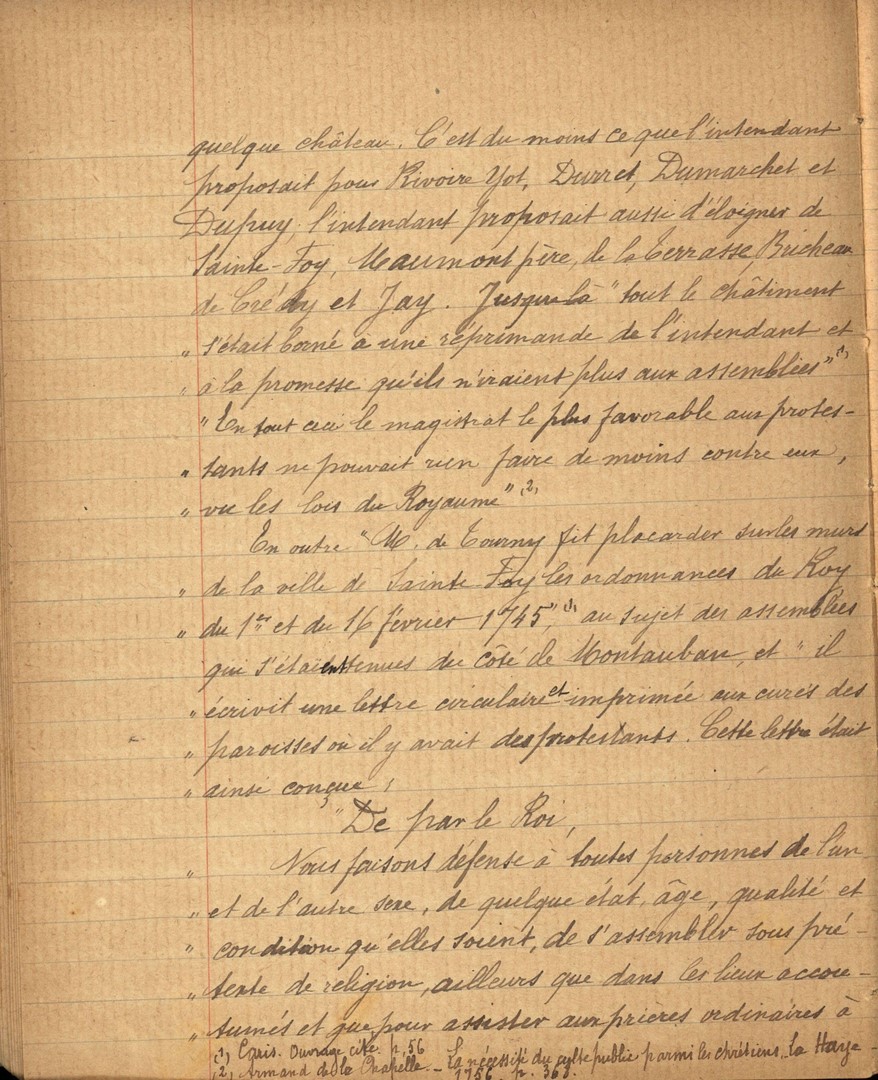 quelque château. C'est du moins ce que l'intendant
proposait pour Rivoire Yot, Durret, Dumarchet et
Dupuy; l'intendant proposait aussi d'éloigner de
Sainte-Foy, Maumont père, de la Terrasse, Bricheau
de Crédy et Jay. Jusque là "tout le châtiment
" s'était borné à une réprimande de l'intendant et
" à la promesse qu'ils n'iraient plus aux assemblées" (1)
" En tout ceci le magistrat le plus favorable aux protes-
" tants ne pouvait rien faire de moins contre eux,
" vu les lois du Royaume" (2)
En outre "M. de Tourny fit placarder sur les murs
" de la ville de Sainte Foy les ordonnances du Roy
" du 1er et du 16 février 1745," (1) au sujet des assemblées
qui s'étaient tenues du côté de Montauban, et " il
" écrivit une lettre circulaire et imprimée aux curés des
" paroisses où il y avait des protestants. Cette lettre était
" ainsi conçue ;
" De par le Roi,
" Nous faisons défense à toutes personnes de l'un
" et de l'autre sexe, de quelque état, âge, qualité et
" condition qu'elles soient, de s'assembler sous pré-
" texte de religion, ailleurs que dans les lieux accou-
" tumés et que pour assister aux prières ordinaires à
(1) Caris. Ouvrage cité. p. 56
(2) Armand de la Chapelle. - La nécessité du culte public parmi les chrétiens. La Haye -
1756. p. 368.